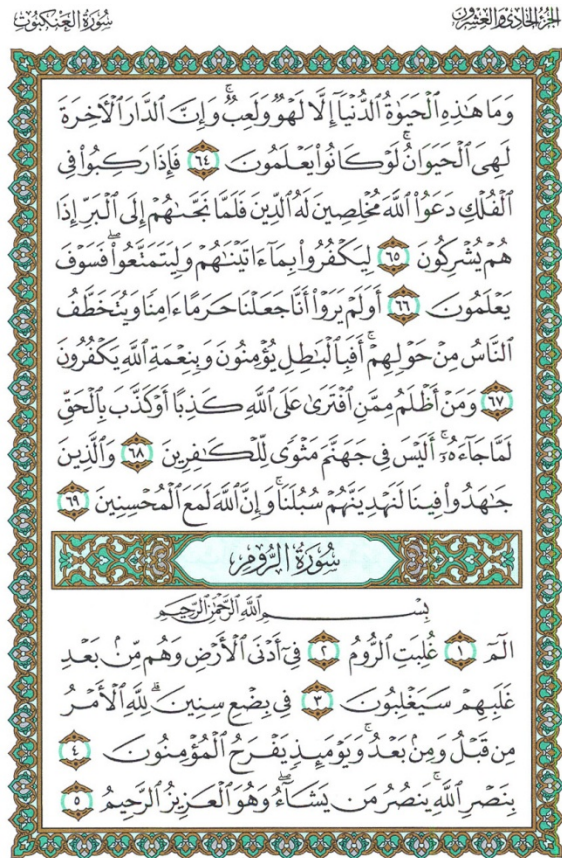 الجزء الحادي والعشرون
سُورَةُ العَنكبُوتِ
وَمَا هَٰذِهِ الْحَيَوٰةُ الدُّنْيَآ إِلَّا لَهْوٌ وَلَعِبٌ ۚ وَإِنَّ الدَّارَ الْأَخِرَةَ
لَهِىَ الْحَيَوَانُ ۚ لَوْ كَانُوا۟ يَعْلَمُونَ ٦٤ فَإِذَا رَكِبُوا۟ فِى
الْفُلْكِ دَعَوُا۟ اللَّهَ مُخْلِصِينَ لَهُ الدِّينَ فَلَمَّا نَجَّىٰهُمْ إِلَى الْبَرِّ إِذَا
هُمْ يُشْرِكُونَ ٦٥ لِيَكْفُرُوا۟ بِمَآ ءَاتَيْنَٰهُمْ وَلِيَتَمَتَّعُوا۟ ۖ فَسَوْفَ
يَعْلَمُونَ ٦٦ أَوَلَمْ يَرَوْا۟ أَنَّا جَعَلْنَا حَرَمًا ءَامِنًا وَيُتَخَطَّفُ
النَّاسُ مِنْ حَوْلِهِمْ ۚ أَفَبِالْبَٰطِلِ يُؤْمِنُونَ وَبِنِعْمَةِ اللَّهِ يَكْفُرُونَ
٦٧ وَمَنْ أَظْلَمُ مِمَّنِ افْتَرَىٰ عَلَى اللَّهِ كَذِبًا أَوْ كَذَّبَ بِالْحَقِّ
لَمَّا جَآءَهُۥٓ ۚ أَلَيْسَ فِى جَهَنَّمَ مَثْوًى لِّلْكَٰفِرِينَ ٦٨ وَالَّذِينَ
جَٰهَدُوا۟ فِينَا لَنَهْدِيَنَّهُمْ سُبُلَنَا ۚ وَإِنَّ اللَّهَ لَمَعَ الْمُحْسِنِينَ ٦٩
سُورَةُ الرُّومِ
بِسْمِ اللَّهِ الرَّحْمَٰنِ الرَّحِيمِ
الٓمٓ ١ غُلِبَتِ الرُّومُ ٢ فِىٓ أَدْنَى الْأَرْضِ وَهُم مِّنۢ بَعْدِ
غَلَبِهِمْ سَيَغْلِبُونَ ٣ فِى بِضْعِ سِنِينَ ۗ لِلَّهِ الْأَمْرُ
مِن قَبْلُ وَمِنۢ بَعْدُ ۚ وَيَوْمَئِذٍ يَفْرَحُ الْمُؤْمِنُونَ ٤
بِنَصْرِ اللَّهِ ۚ يَنصُرُ مَن يَشَآءُ ۖ وَهُوَ الْعَزِيزُ الرَّحِيمُ ٥